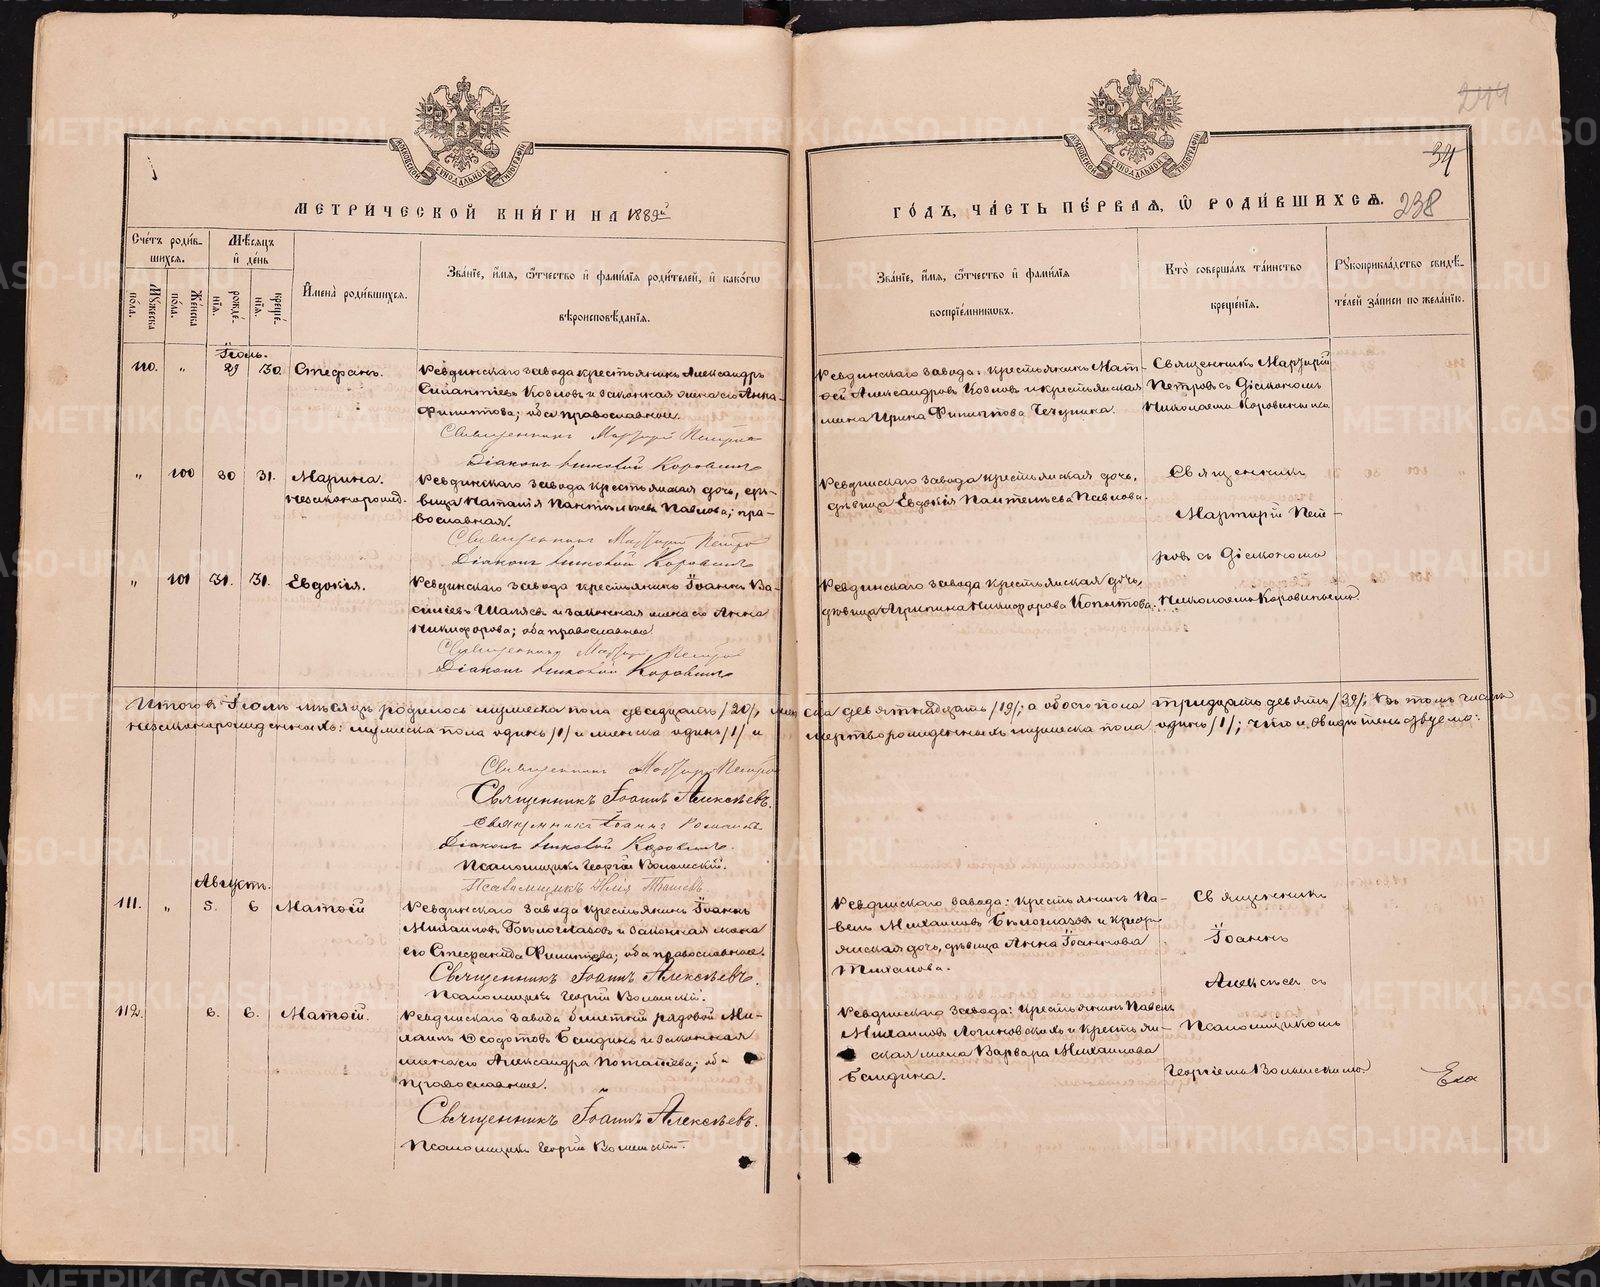 244
34
238
МОСКОВСКОЙ СѴНОДАЛЬНОЙ ТИПОГРАФІИ
МОСКОВСКОЙ СѴНОДАЛЬНОЙ ТИПОГРАФІИ
МЕТРИ́ЧЕСКОЙ КНИ́ГИ НА 1889й
ГО́ДЪ, ЧА́СТЬ ПЕ́РВАѦ, Ѡ РОДИ́ВШИХСѦ.
Сче́тъ роди́в-
шихся.
Мѣ́сяцъ
и҆ де́нь
Мꙋ́жеска по́ла.
Же́нска по́ла.
рожде́нїя.
креще́нїя.
И҆мена̀ роди́вшихся.
Зва́нїе, и҆́мя, ѻ҆́тчество и҆ фамѝлїя роди́телей, и҆ како́гѡ
вѣроисповѣ́данїя.
Зва́нїе, и҆́мя, ѻ҆́тчество и҆ фамѝлїя
воспрїе́мникѡвъ.
Кто̀ соверша́лъ та́инство
креще́нїя.
Рꙋкоприкла́дство свидѣ́-
телей за́писи по жела́нїю.
Іюль.
110. " 29 30. Стефанъ.
Ревдинскаго завода крестьянинъ Александръ
Козловъ и законная жена его Анна
Филиптова; оба православные.
Священникъ Мартирій Петровъ
Діаконъ Николай Коровинъ
Ревдинскаго завода: крестьянинъ Мат-
ѳей Александровъ Козловъ и крестьянская
жена Ирина Филиптова
Священникъ Мартирій
Петровъ съ Діакономъ
Николаемъ Коровинымъ
" 100 30 31. Марина.
незаконорожд.
Ревдинскаго завода крестьянская дочь, дѣ-
вица Наталія Пантелеева Павлова; пра-
вославная.
Священникъ Мартирій Петровъ
Діаконъ Николай Коровинъ
Ревдинскаго завода крестьянская дочь,
дѣвица Евдокія Пантелеева Павлова.
Священникъ
Мартирій Пет-
ровъ съ Діакономъ
Николаемъ Коровинымъ
" 101 31. 31. Евдокія.
Ревдинскаго завода крестьянинъ Іоаннъ Ва-
сильевъ и законная жена его Анна
Никифорова; оба православные
Священникъ Мартирій Петровъ
Діаконъ Николай Коровинъ
Ревдинскаго завода крестьянская дочь,
дѣвица Агрипина Никифорова Копытова.
Итого въ Іюлѣ мѣсяцѣ родилось мужеска пола двадцать /20/, женска девятнадцать /19/; а обоего пола тридцать девять /39/; въ томъ числѣ
незаконорожденныхъ: мужеска пола одинъ /1/ и женска одинъ /1/ и мертворожденныхъ мужеска пола одинъ /1/; что и свидѣтельствуемъ:
Священникъ Мартирій Петровъ
Священникъ Іоаннъ Алексѣевъ.
Священникъ Іоаннъ
Діаконъ Николай Коровинъ.
Псаломщикъ Георгій Волынскій.
Псаломщикъ Илія
Августъ.
111. " 5. 6 Матѳій
Ревдинскаго завода крестьянинъ Іоаннъ
Михаиловъ Бѣлоглазовъ и законная жена
его Стефанида Филиптова; оба православные.
Священникъ Іоаннъ Алексѣевъ.
Псаломщикъ Георгій Волынскій.
Ревдинскаго завода: крестьянинъ Па-
велъ Михаиловъ Бѣлоглазовъ и кресть-
янская дочь, дѣвица Анна Іоаннова
Священникъ
Іоаннъ
Алексѣевъ съ
Псаломщикомъ
Георгіемъ Волынскимъ.
112. 6. 6. Матѳій.
Ревдинскаго завода билетный рядовой Ми-
хаилъ Ѳеодотовъ Бандинъ и законная
жена его Александра Потапьева; оба
православные.
Священникъ Іоаннъ Алексѣевъ.
Псаломщикъ Георгій Волынскій.
Ревдинскаго завода: крестьянинъ Павелъ
Михаиловъ Логиновскихъ и крестьян-
ская жена Варвара Михаилова
Бандина.
METRIKI.GASO-URAL.RU